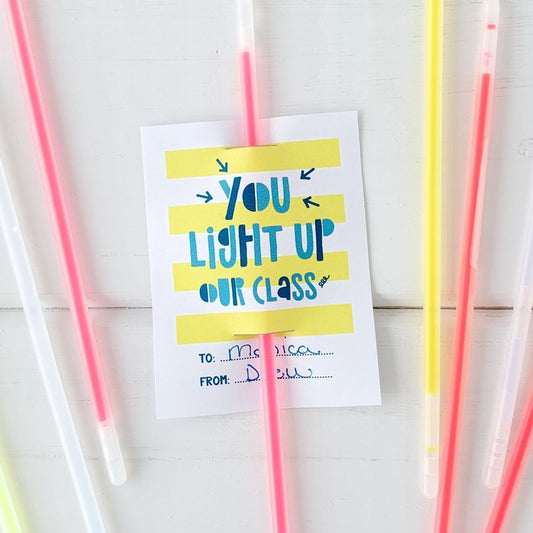 YOU
LIGHT UP
OUR CLASS
TO: Monica
FROM: Drew